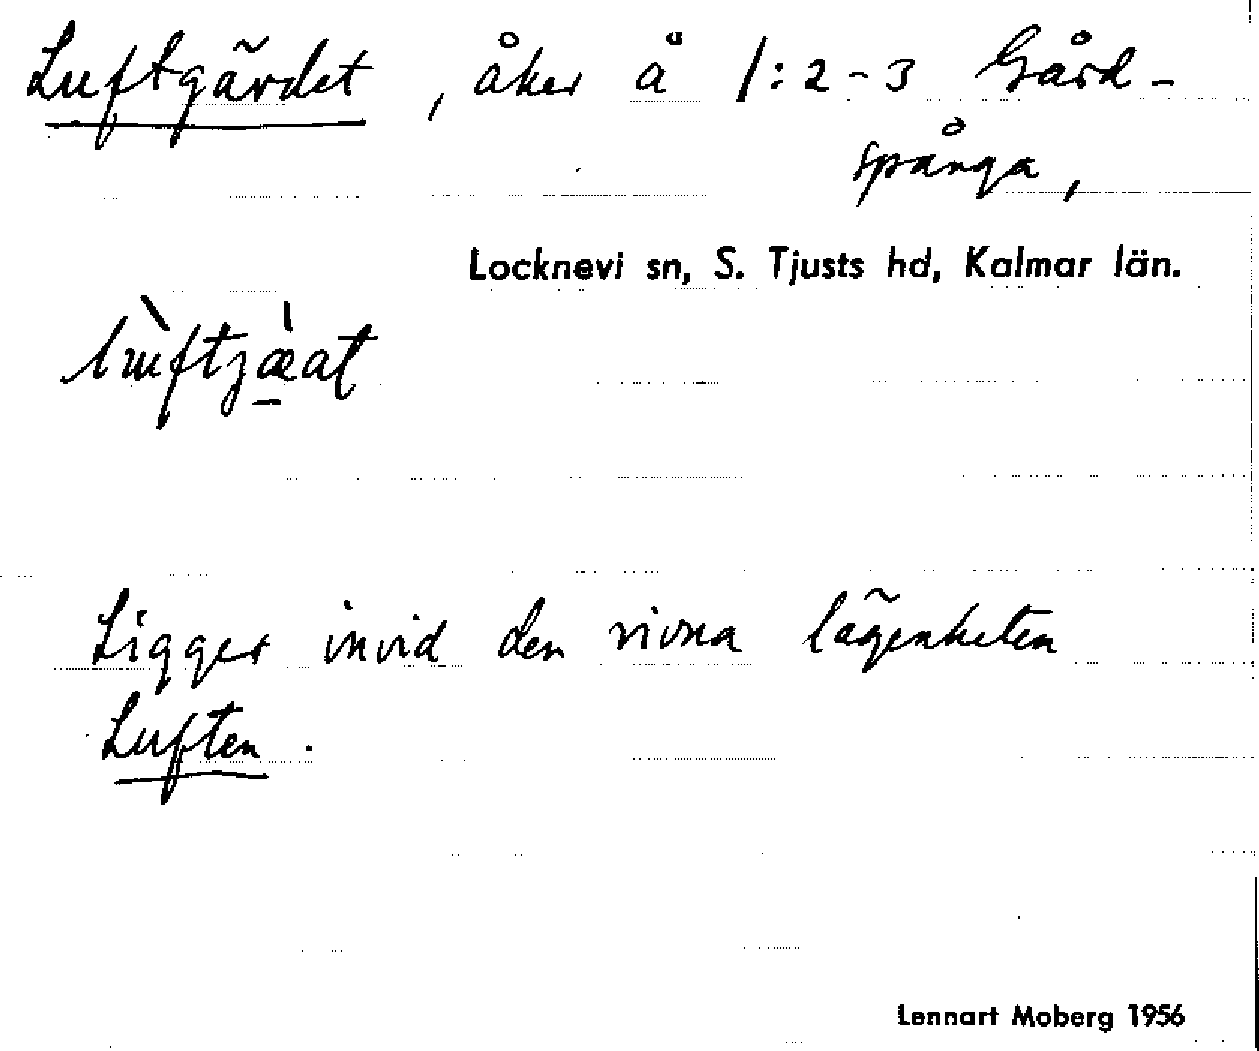 Luftgärdet, åker å 1:2-3 Gård-
spånga,
Locknevi sn, S. Tjusts hd, Kalmar län.
Ligger invid den rivna lägenheten
Luften.
Lennart Moberg 1956